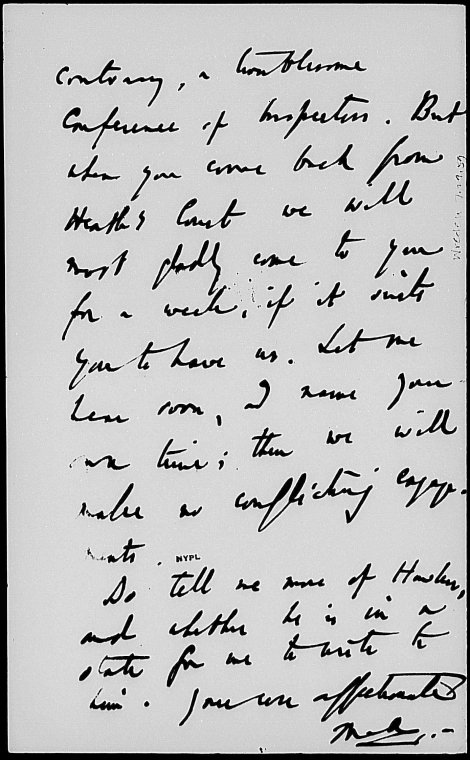 contrary, a troublesome
Conference of Inspectors. But
when you come back from
Heath's Court we will
most gladly come to you
for a week, if it suits
you to have us. Let me
hear soon, & name your
own time; then we will
make no conflicting engage-
ments.
NYPL
Do tell me more of Hawker,
and whether he is in a
state for me to write to
him. Your ever affectionate
M.A.-
Wreden 7.27.59